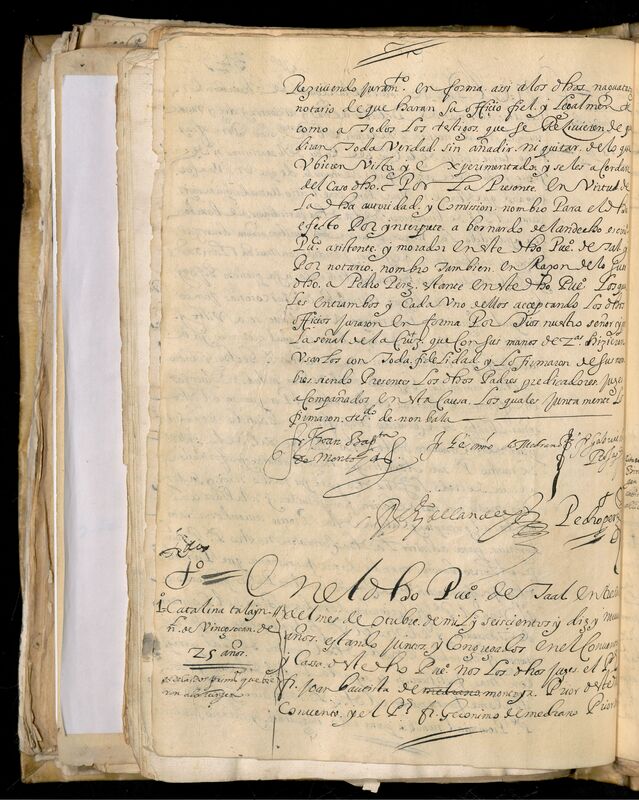 Resçiuiendo juramto. en forma, assi a los dhos naguatato
notario de que haran su officio fiel, y Legalmente
como a Todos Los testigos que se Reciuieren de q
diran Toda Verdad sin añadir ni quitar de lo que
Vbieren Visto, y experimentado, y se les acordare
del Caso dho. Por La Presente en Virtud de
La dha autoridad, y Comission nombro Para el dho
efecto Por ynterprete a bernardo de
Puo. asistente, y morador en este dho Puo. de Taal, y
Por notario nombro Tambien en Razon de lo
dho. a Pedro Perez estante en este dho Puo. Los qua
Les entrambos y Cada Vno dellos acceptando Los dhos
officios juraron en forma Por Dios nuestro señor, y
La señal de la Cruz que Con sus manos drechas hizieron
Vsarlos con Toda fidelidad, y Lo firmaron de sus nom
bres siendo Presentes Los dhos Padres predicadores juezes
acompañados en esta Causa. Los quales juntamente Lo
firmaron. tesdo. de non bala
fr Joan Bapta
de Montoya
fr Geronimo de Medrano
fr gabriel
Pedro perez
1º
En el dho Puo. de Taal en
del mes de octubre de mil y seiscientos y diez y nueue
años. estando juntos, y Congregados en el Conuento
y Cassa deste dho Puo. Nos Los dhos juezes el P
fr. joan bautista de medrano montoya Prior deste
Conuento, y el Pe. fr. Geronimo de medrano Prior
1. Catalina talayn
na. de Vincocan. de
25 años.